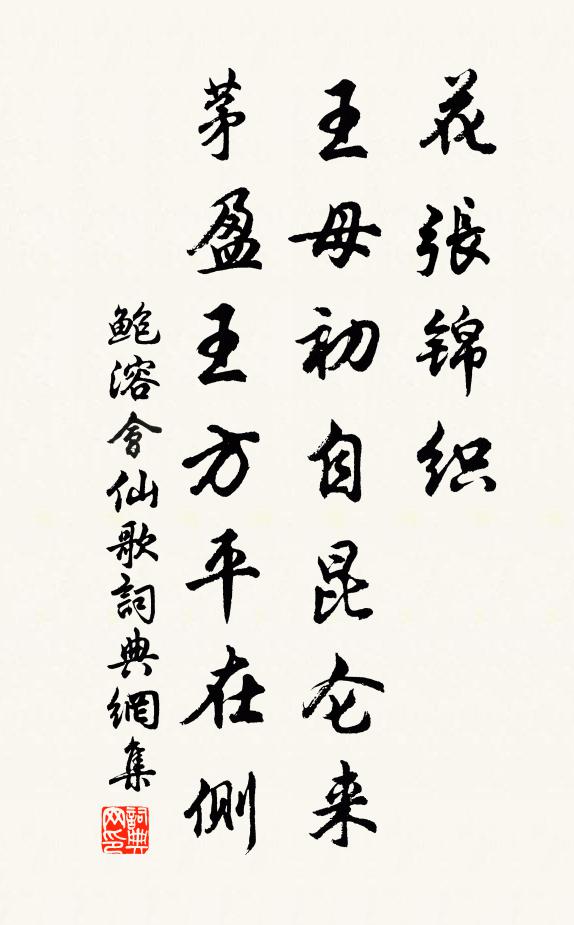 花張锦织
王母初自昆仑来
茅盈王方平在侧
鲍溶會仙歌詞典網集
詞典网印